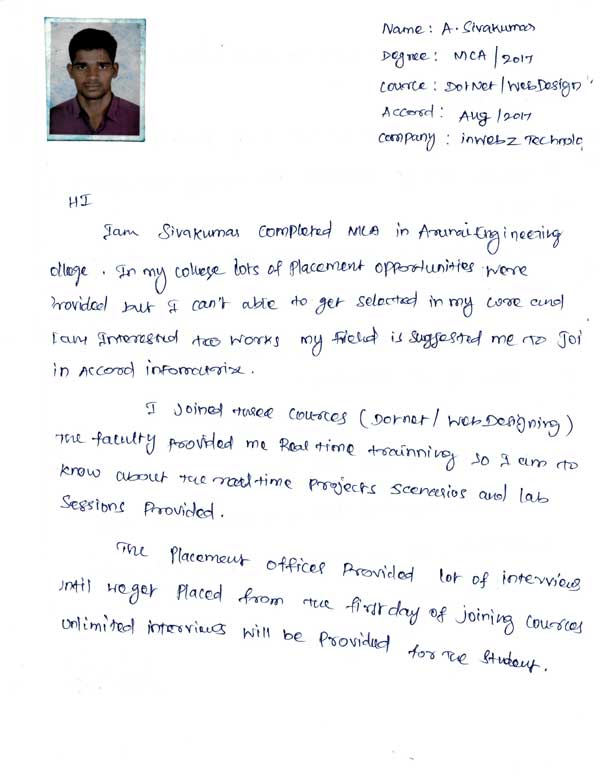 Name : A. Sivakumar
Degree : MCA / 2017
Cource : DotNet / WebDesign
Accord : Aug / 2017
Company : inwebz Technolo
HI
I am Sivakumar Completed MCA in Arunai Engineering
ollege . In my college lots of Placement opportunities were
Provided but I can't able to get selected in my core and
I am Interested to works my field is suggested me to Joi
in Accord
I Joined these Cources (Dotnet / WebDesigning)
The faculty Provided me Real time trainning so I am to
know about the real time Projects Scenarios and lab
Sessions Provided .
The Placement offices Provided lot of interviews
until we get Placed from the first day of joining Cources
Unlimited interviews will be Provided for the student .